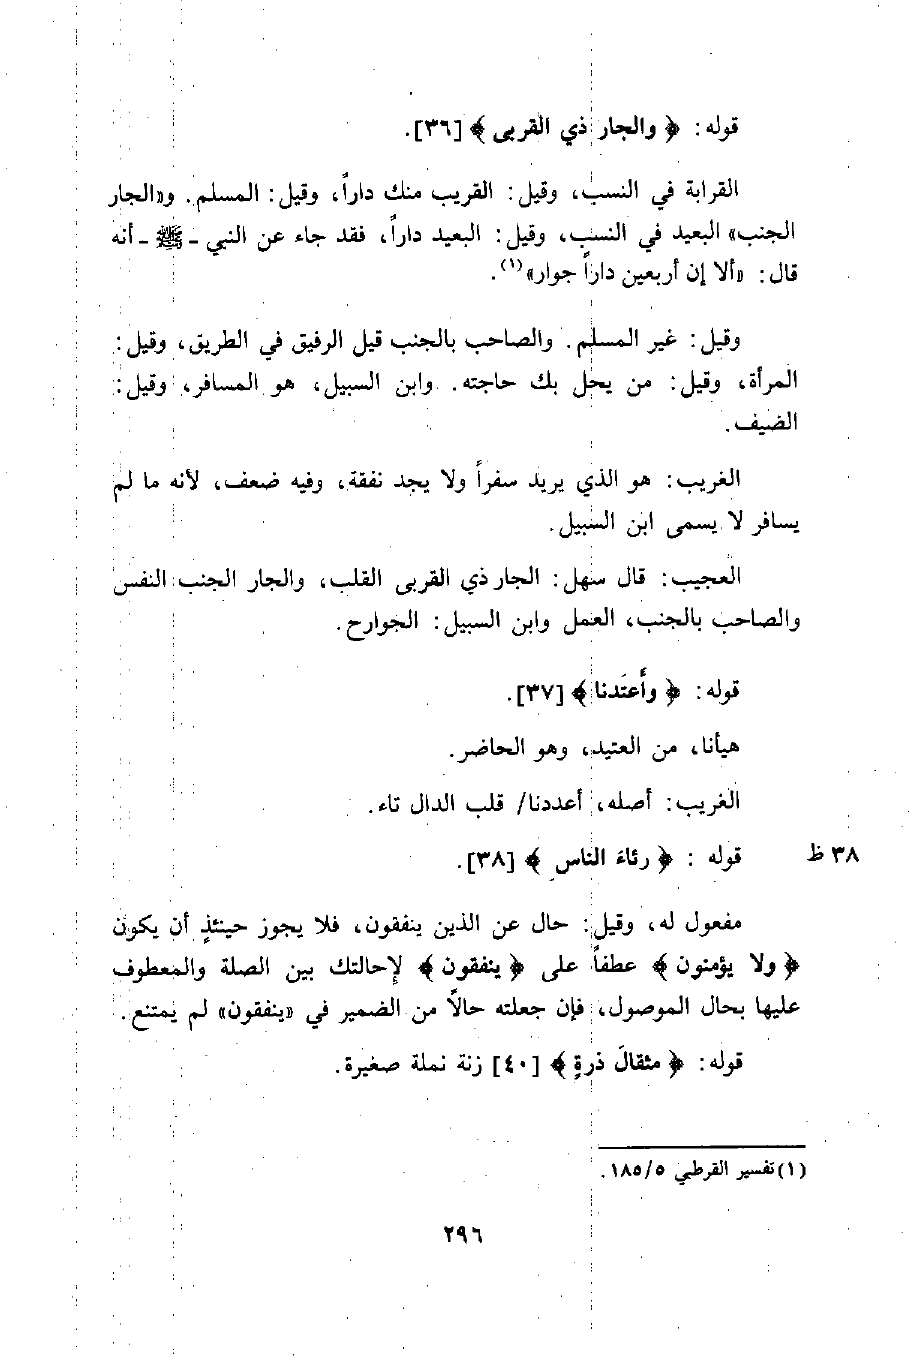 قوله: ﴿ والجار ذي القربى ﴾ [٣٦].
القرابة في النسب، وقيل: القريب منك داراً، وقيل: المسلم. و«الجار
الجنب» البعيد في النسب، وقيل: البعيد داراً، فقد جاء عن النبي - ﷺ - أنه
قال: «ألا إن أربعين داراً جوار»(١).
وقيل: غير المسلم. والصاحب بالجنب قيل الرفيق في الطريق، وقيل:
المرأة، وقيل: من يحل بك حاجته. وابن السبيل، هو المسافر، وقيل:
الضيف.
الغريب: هو الذي يريد سفراً ولا يجد نفقة، وفيه ضعف، لأنه ما لم
يسافر لا يسمى ابن السبيل.
العجيب: قال سهل: الجار ذي القربى القلب، والجار الجنب النفس
والصاحب بالجنب، العمل وابن السبيل: الجوارح.
قوله: ﴿ وأَعتَدنا ﴾ [٣٧].
هيأنا، من العتيد، وهو الحاضر.
الغريب: أصله، أعددنا/ قلب الدال تاء.
قوله : ﴿ رئاءَ الناس ﴾ [٣٨]. ٣٨ ظ
مفعول له، وقيل: حال عن الذين ينفقون، فلا يجوز حينئذٍ أن يكون
﴿ ولا يؤمنون ﴾ عطفاً على ﴿ ينفقون ﴾ لإحالتك بين الصلة والمعطوف
عليها بحال الموصول، فإن جعلته حالاً من الضمير في «ينفقون» لم يمتنع.
قوله: ﴿ مثقالَ ذرةٍ ﴾ [٤٠] زنة نملة صغيرة.
(١) تفسير القرطبي ١٨٥/٥.
٢٩٦